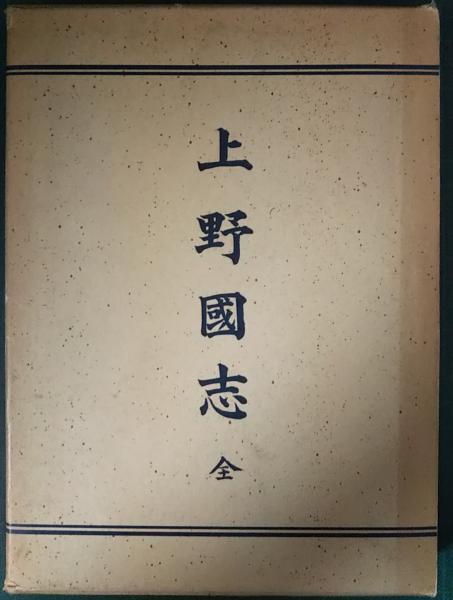 上野國志全